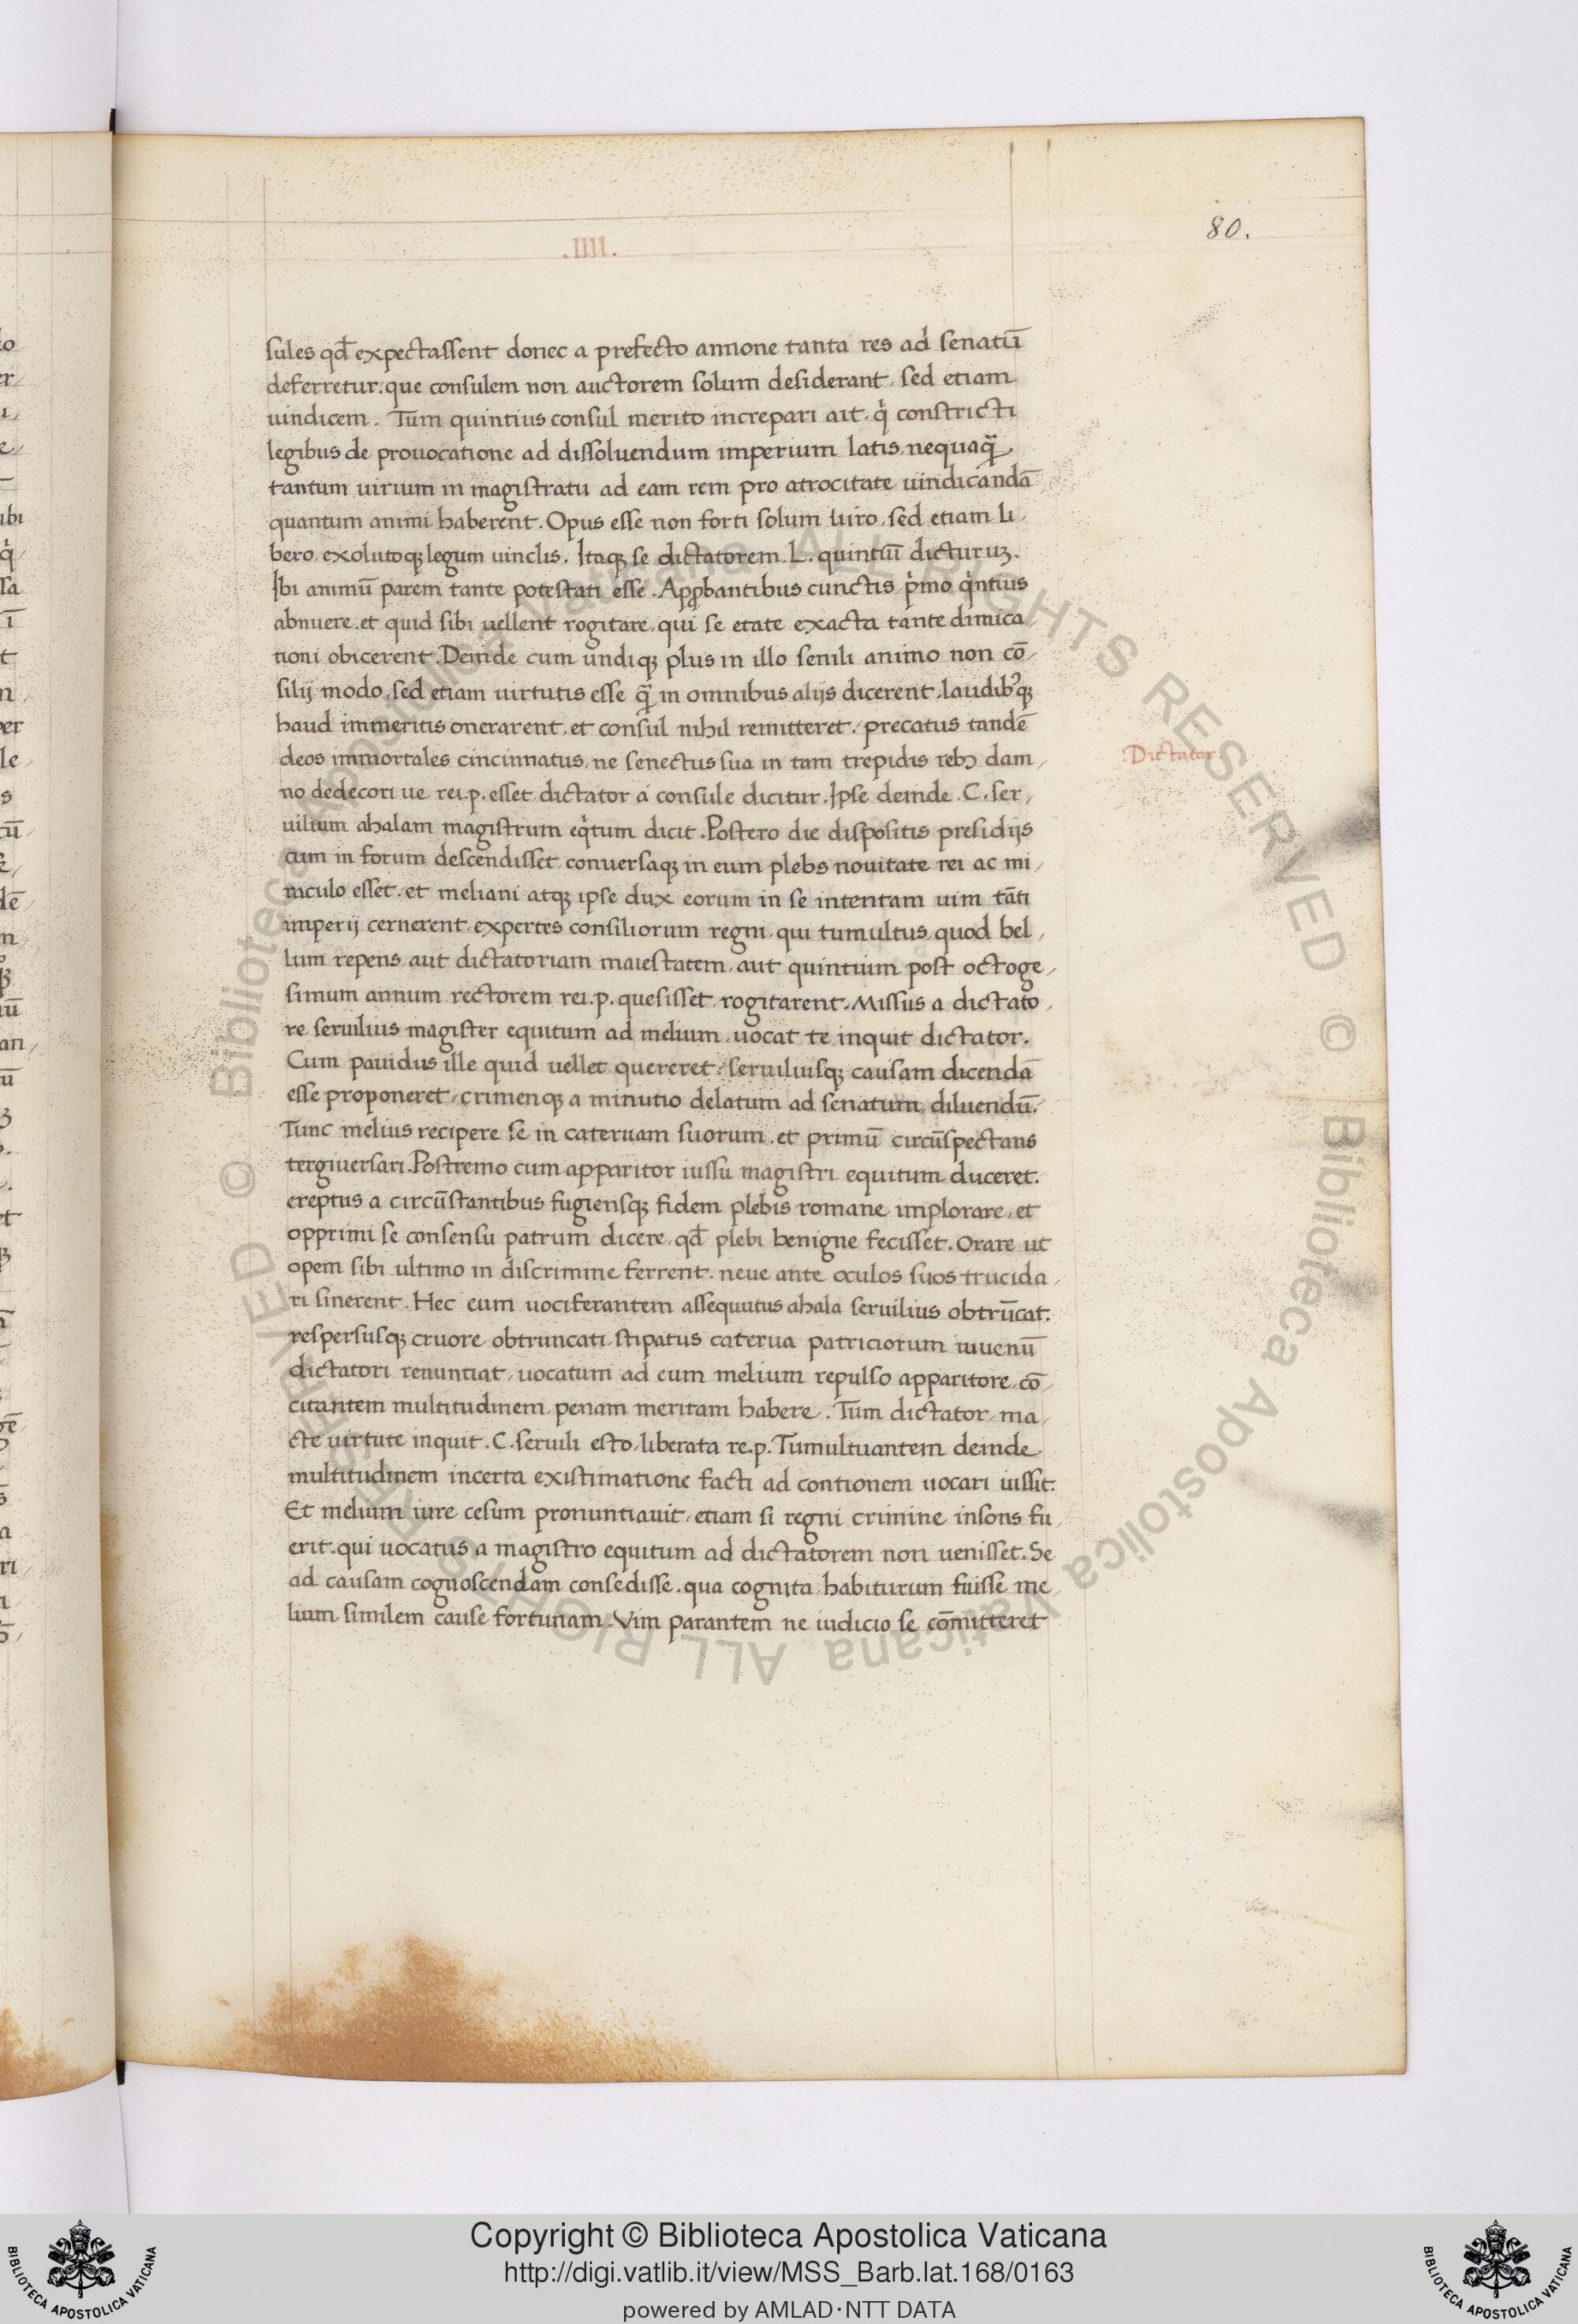 .IIII.
80.
sules qd̄ expectassent donec a prefecto annone tanta res ad senatū
deferretur. que consulem non auctorem solum desiderant, sed etiam
uindicem. Tum quintius consul merito increpari ait. q̇ constricti
legibus de prouocatione ad dissoluendum imperium latis, nequaq̄
tantum uirium in magistratu ad eam rem pro atrocitate uindicandā
quantum animi haberent. Opus esse non forti solum uiro, sed etiam li,
bero, exolutoqꝫ legum uinclis. Itaqꝫ se dictatorem .L. quintiū dicturuꝫ.
Ibi animū parem tante potestati esse. Apꝓbantibus cunctis, pͥmo qͥntius
abnuere. et quid sibi uellent rogitare, qui se etate exacta tante dimica,
tioni obicerent. Deinde cum undiqꝫ plus in illo senili animo non cō,
silij modo, sed etiam uirtutis esse q̄ in omnibus alijs dicerent, laudib'qꝫ
haud immeritis onerarent, et consul nihil remitteret, precatus tandē
deos immortales cincinnatus, ne senectus sua in tam trepidis rebꝫ dam,
Dictator
no dedecori ue rei.p. esset dictator a consule dicitur. Ipse deinde .C. ser,
uilium ahalam magistrum eqͥtum dicit. Postero die dispositis presidijs
cum in forum descendisset conuersaqꝫ in eum plebs nouitate rei ac mi,
raculo esset. et meliani atqꝫ ipse dux eorum in se intentam uim tāti
imperij cernerent, expertes consiliorum regni, qui tumultus, quod bel,
lum repens, aut dictatoriam maiestatem, aut quintium post octoge,
simum annum rectorem rei.p. quesisset, rogitarent. Missus a dictato,
re seruilius magister equitum ad melium, uocat te inquit dictator.
Cum pauidus ille quid uellet quereret, seruiliusqꝫ causam dicendā
esse proponeret, crimenqꝫ a minutio delatum ad senatum, diluendū.
Tunc melius recipere se in cateruam suorum. et primū circūspectans
tergiuersari. Postremo cum apparitor iussu magistri equitum duceret.
ereptus a circūstantibus fugiensqꝫ fidem plebis romane implorare, et
opprimi se consensu patrum dicere, qd̄ plebi benigne fecisset. Orare ut
opem sibi ultimo in discrimine ferrent. neue ante oculos suos trucida,
ri sinerent. Hec eum uociferantem assequutus ahala seruilius obtrūcat.
respersusqꝫ cruore obtruncati, stipatus caterua patriciorum iuuenū
dictatori renuntiat, uocatum ad eum melium repulso apparitore, cō,
citantem multitudinem, penam meritam habere. Tum dictator, ma,
cte uirtute inquit .C. seruili esto, liberata re.p. Tumultuantem deinde
multitudinem incerta existimatione facti ad contionem uocari iussit.
Et melium iure cesum pronuntiauit, etiam si regni crimine insons fu,
erit. qui uocatus a magistro equitum ad dictatorem non uenisset. Se
ad causam cognoscendam consedisse. qua cognita, habiturum fuisse me,
lium similem cause fortunam. Vim parantem ne iudicio se cōmitteret
Copyright © Biblioteca Apostolica Vaticana
http://digi.vatlib.it/view/MSS_Barb.lat.168/0163
powered by AMLAD·NTT DATA